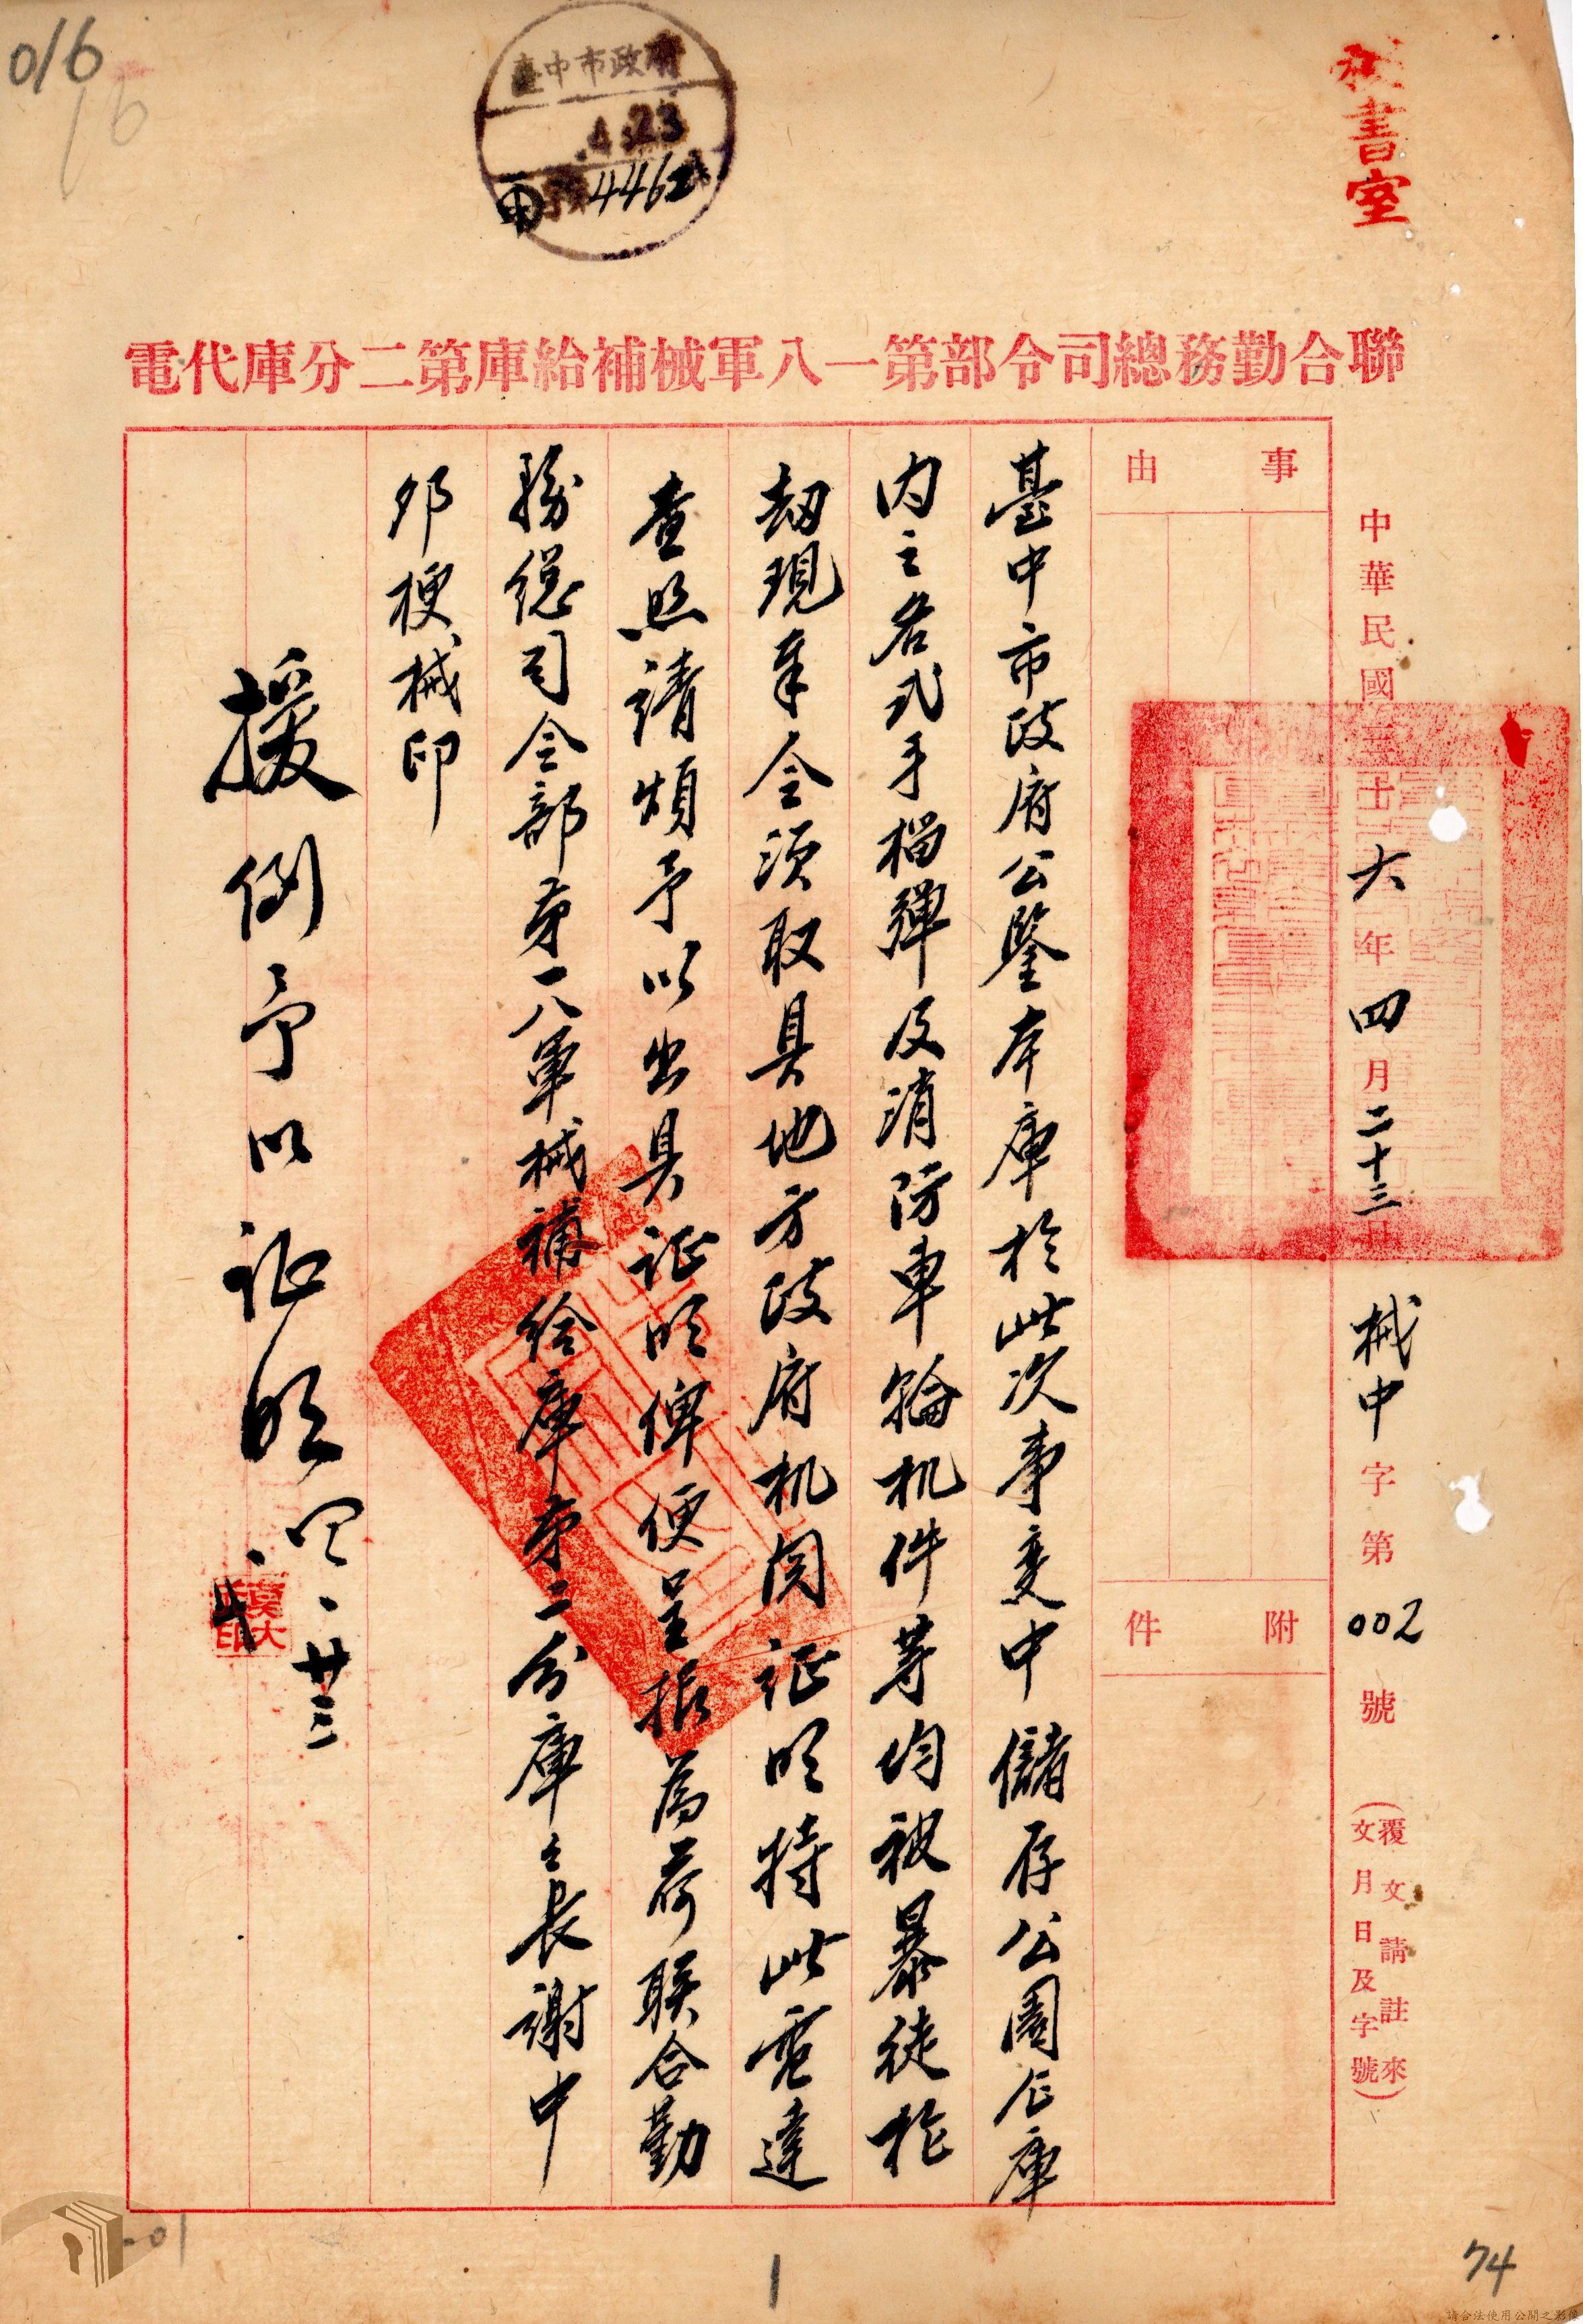 016
16
臺中市政府
4.23
甲 4462
秘書室
聯合勤務總司令部第一八軍械補給庫第二分庫代電
中華民國三十六年四月二十三日 械中字第002號
(覆文請註來
文月日及字號)
事由
附件
臺中市政府公鑒本庫於此次事變中儲存公園仑庫
內之各式手榴彈及消防車輪机件等均被暴徒抢
劫現奉令須取具地方政府机関证明特此電達
查照請煩予以出具证明俾便呈振為荷联合勤
務総司令部第一八軍械補給庫第二分庫々長謝中
邜梗械印
援例予以证明
四、廿三
74
1
請合法使用公開之影像